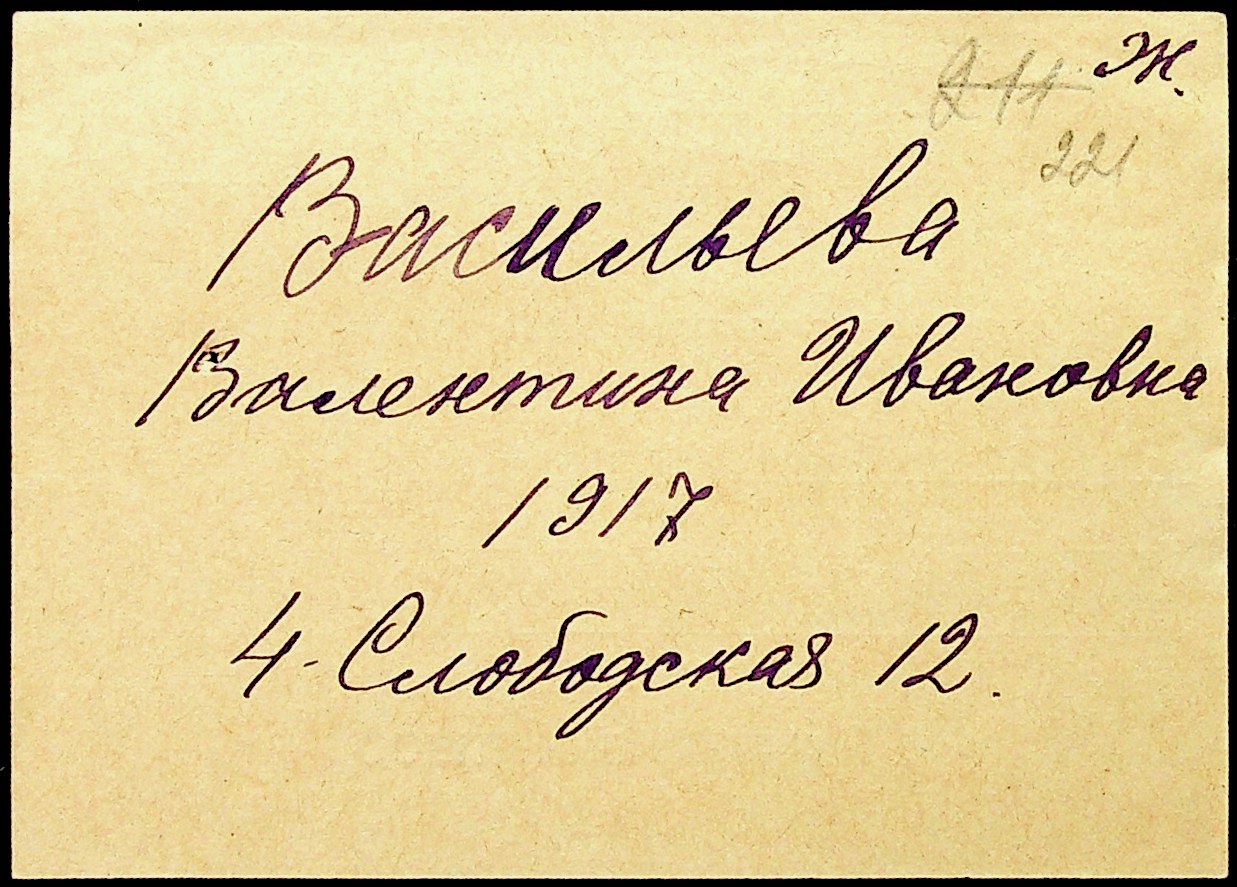 ж.
221
Васильева
Валентина Ивановна
1917
4-Слободская 12.